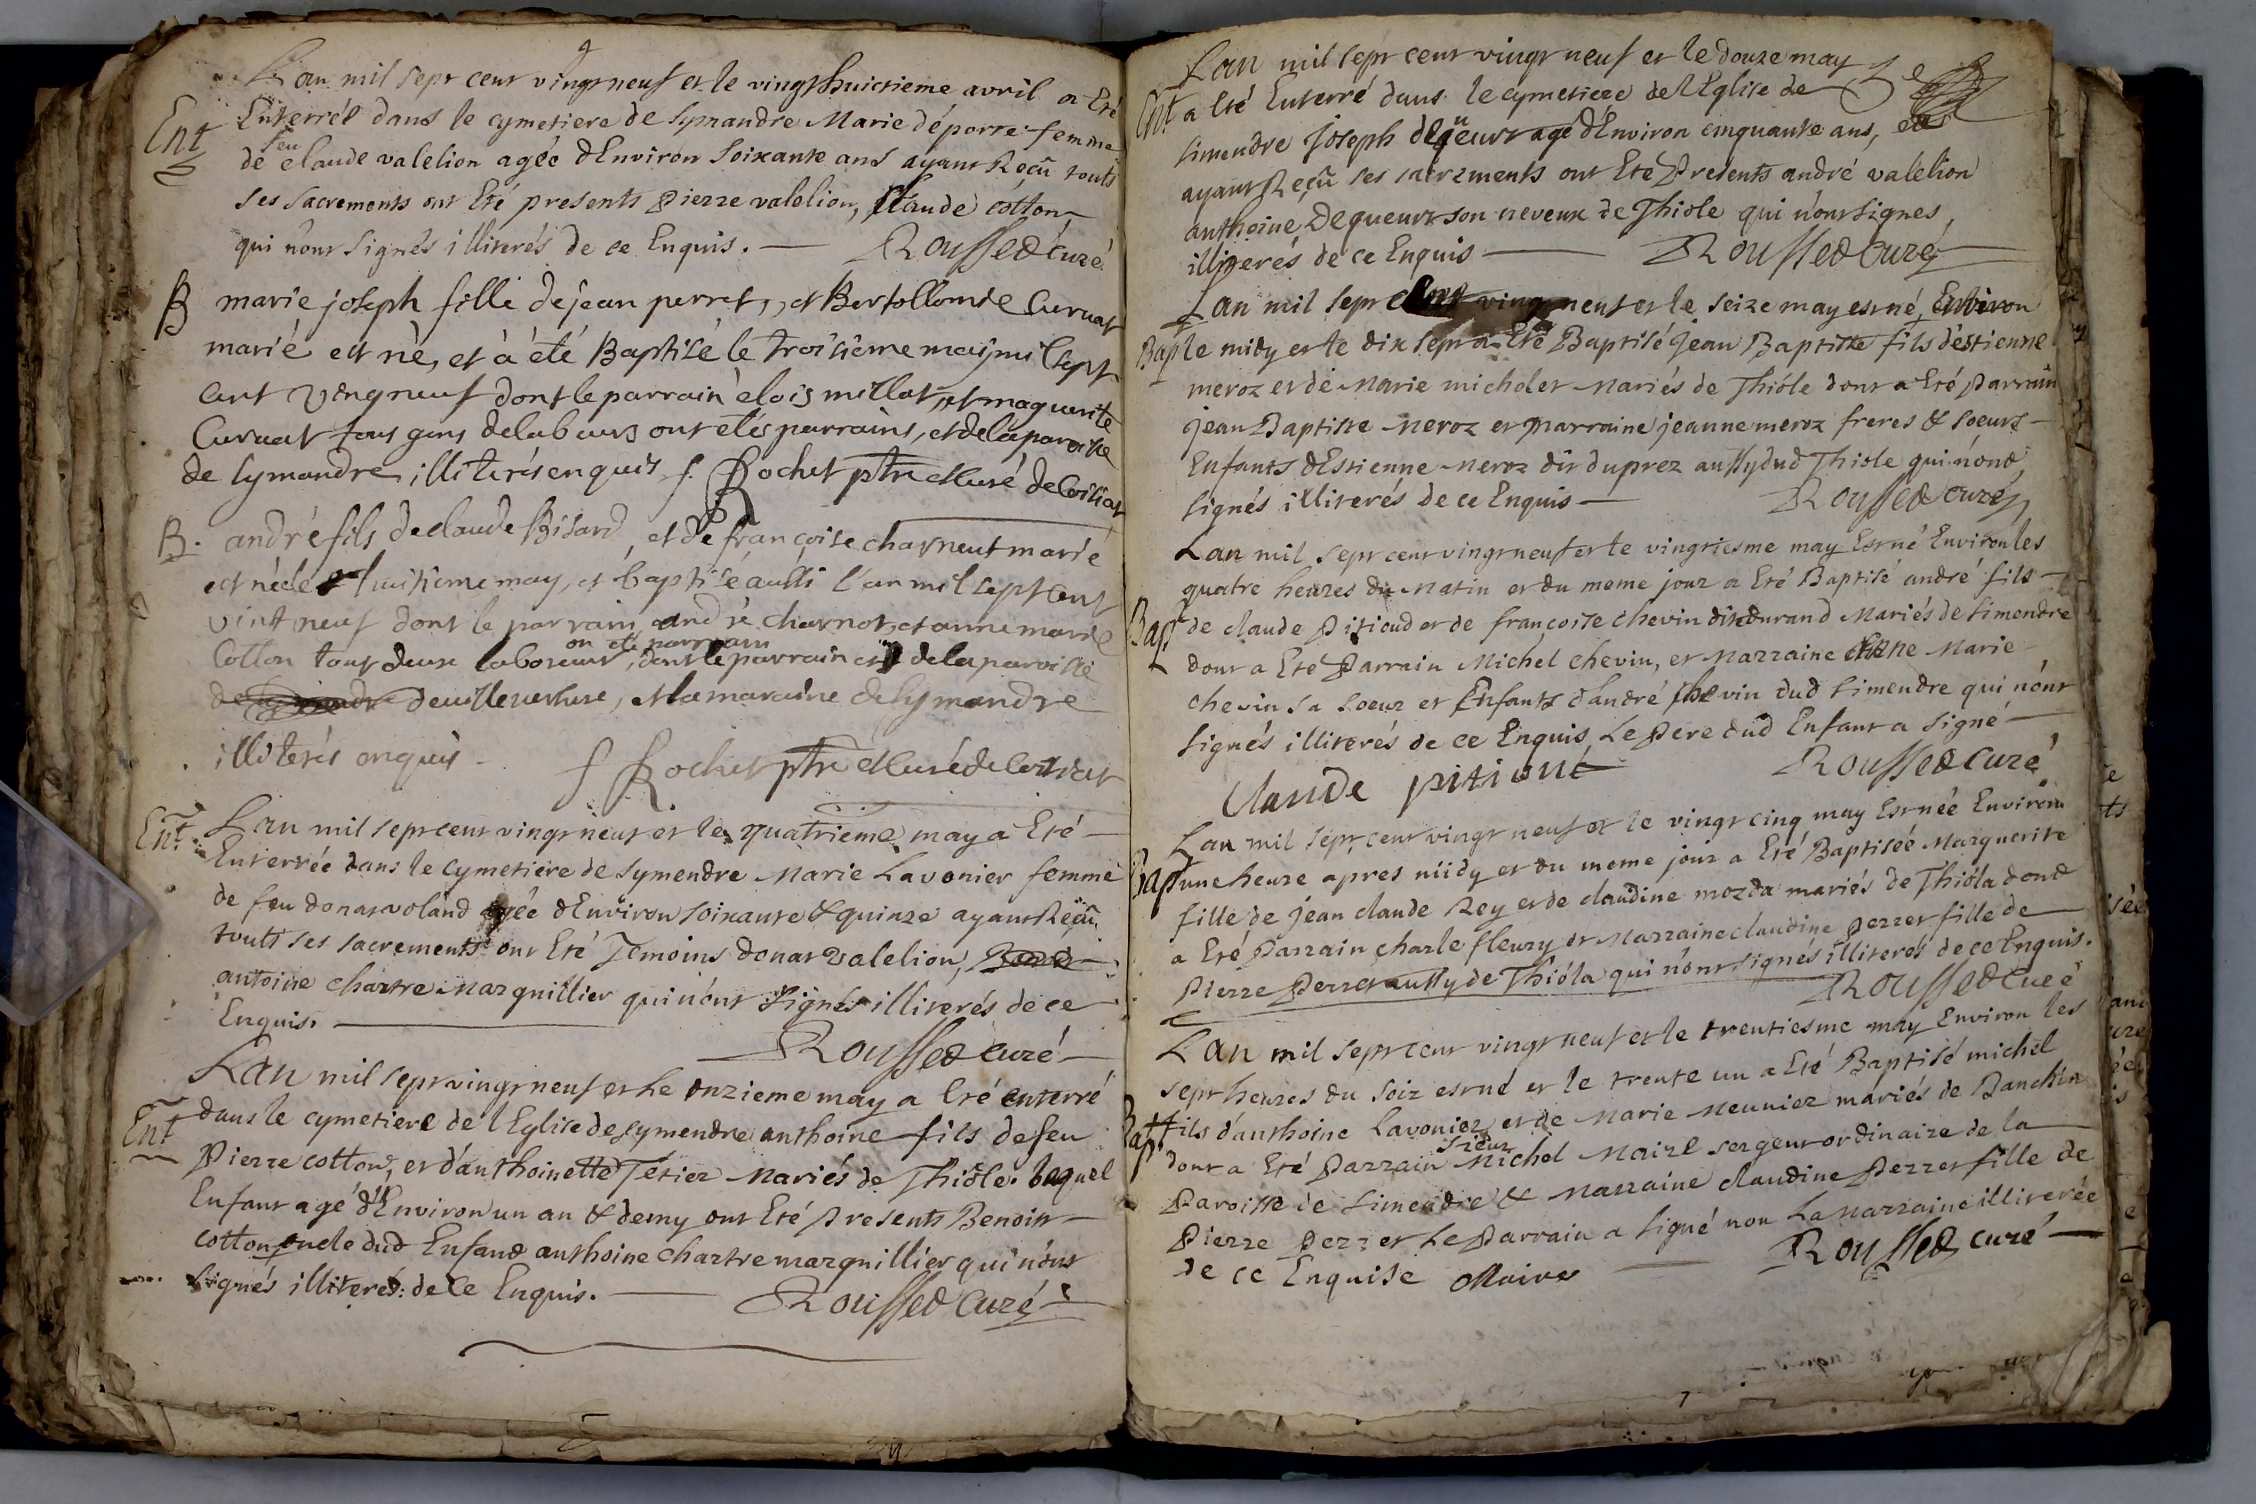 Lan mil sept cent vingt neuf et le vingt huictieme avril a Eté
Ent
Enterréé dans le cymetiere de Symandre Marie déporte femme
de feu claude valelion agée dEnviron Soixante ans ayant Reçû touts
ses sacrements ont Eté presents Pierre valelion, Claude cotton
qui n'ont Signés illiterés de ce Enquis. Roussed Curé
B
marie joseph fille de jean perret, et Bertollomie Curvat
marié est né, et à été Baptisé le troisieme may mil sept
cent Vingneuf dont le parrain elois millat, et maguerite
Curvat tous gens de labeurs ont étés parrains, et de la paroisse
de symandre illiterés enquis f. Rochet ptre et Curé de
B.
andré fils de claude Bisard, et de françoise charneut marié
est né le huitieme may, et baptisé aussi l'an mil sept cent
vint neuf dont le parrain andré charnot, et anne marie
Cotton tout deux laboreurs on été parrain, dont le parrain est de la paroisse
de devilleversure, et la maraine de symandre
illiterés enquis f Rochet ptre et Curé de
Ent.
Lan mil sept cent vingt neuf et le quatrieme may a Eté
Enterrée dans le cymetiere de Symendre Marie Lavonier femme
de feu donat voland agée dEnviron soixante & quinze ayant Reçû
touts ses sacrements ont Eté Temoins donat valelion,
antoine chartre Marguillier qui n'ont Signés illiterés de ce
Enquis. Roussed curé
Lan mil sept vingt neuf et Le onzieme may a Eté enterré
Ent
dans le cymetiere de lEglise de symendre anthoine fils de feu
Pierre cotton, et d'anthoinette Tetier Mariés de Thiole. Laquel
Enfant agé d'Environ un an & demy ont Eté Presents Benoit
cotton oncle dud Enfand anthoine chartre marguillier qui n'ont
signés illiterés: de ce Enquis. Roussed Curé
Lan mil sept cent vingt neuf et le douze may
Ent
a Eté Enterré dans le cymetiere de lEglise de
simendre Joseph dequeurt agé dEnviron cinquante ans,
ayant Reçû ses sacrements ont Eté Presents andré valelion
anthoine Dequeurt son neveux de Thiole qui n'ont signes
illiterés de ce Enquis Roussed Curé
Lan mil sept cent vingt neuf et le seize may est né, Environ
Bap
le midy et le dix sept a Eté Baptisé Jean Baptiste fils dEstienne
meroz et de Marie micholet Mariés de Thióle dont a Eté Parrain
jean Baptiste Meroz et marraine jeanne meroz freres & soeurs
Enfants dEstienne Meroz dit duprez aussy dud Thiole qui n'ont
signés illiterés de ce Enquis Roussed curé
Lan mil sept cent vingt neuf et le vingtiesme may Est né Environ les
quatre heures du Matin et du meme jour a Eté Baptisé andré fils
Bap.
de claude Pitioud et de francoise chevin dit durand Mariés de Simendre
dont a Eté Parrain Michel chevin, et Marraine Marie
chevin sa soeur et Enfants d'andré chevin dud simendre qui n'ont
signés illiterés de ce Enquis Le Pere dud Enfant a signé
Claude pitiout Roussed Curé
Lan mil sept cent vingt neuf et le vingt cinq may Est née Environ
Bap
une heure apres midy et du meme jour a Eté Baptisée Marguerite
fille de jean claude Rey et de claudine mozda mariés de Thióla dond
a Eté Parrain charle fleury et Marraine claudine Perret fille de
Pierre Perret aussy de Thióla qui n'ont signés illiterés de ce Enquis.
Roussed Curé
Lan mil sept cent vingt neuf et le trentiesme may Environ les
sept heures du soir est né et le trente un a Eté Baptisé michel
Bap
fils d'anthoine Lavonier et de Marie Meunier mariés de Banchin
dont a Eté Parrain sieur Michel Maire sergent ordinaire de la
Paroisse de Simendre & Marraine claudine Perret fille de
Pierre Perret Le Parrain a signé non La Marraine illiterée
de ce Enquise Maire Roussed curé